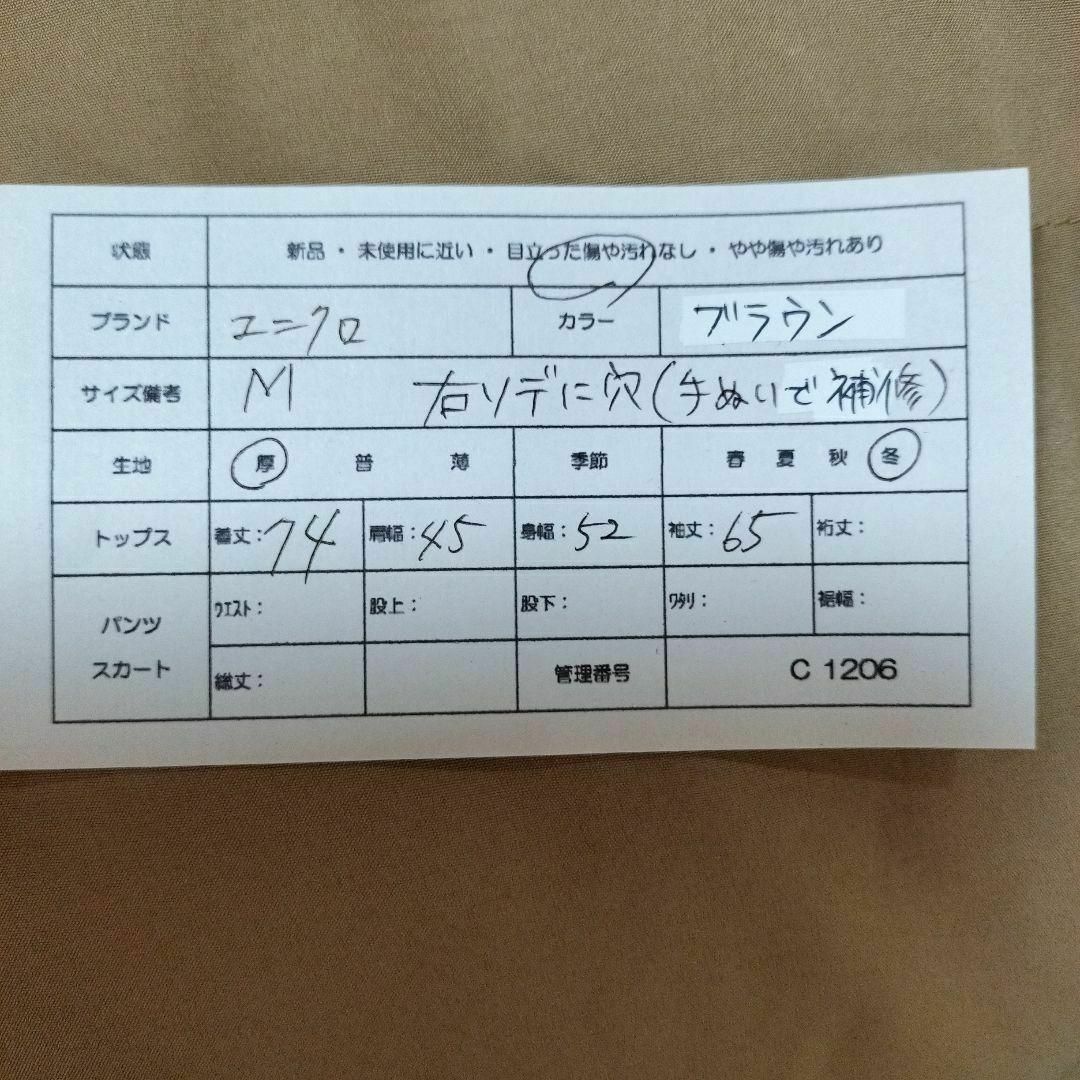 状態 新品・未使用に近い・目立った傷や汚れなし・やや傷や汚れあり
ブランド ユニクロ カラー ブラウン
サイズ備考 M 右ソデに穴(手ぬいで補修)
生地 厚 普 薄 季節 春 夏 秋 冬
トップス 着丈:74 肩幅:45 身幅:52 袖丈:65 裄丈:
パンツ スカート ウエスト: 股上: 股下: ワタリ: 裾幅:
総丈: 管理番号 C 1206